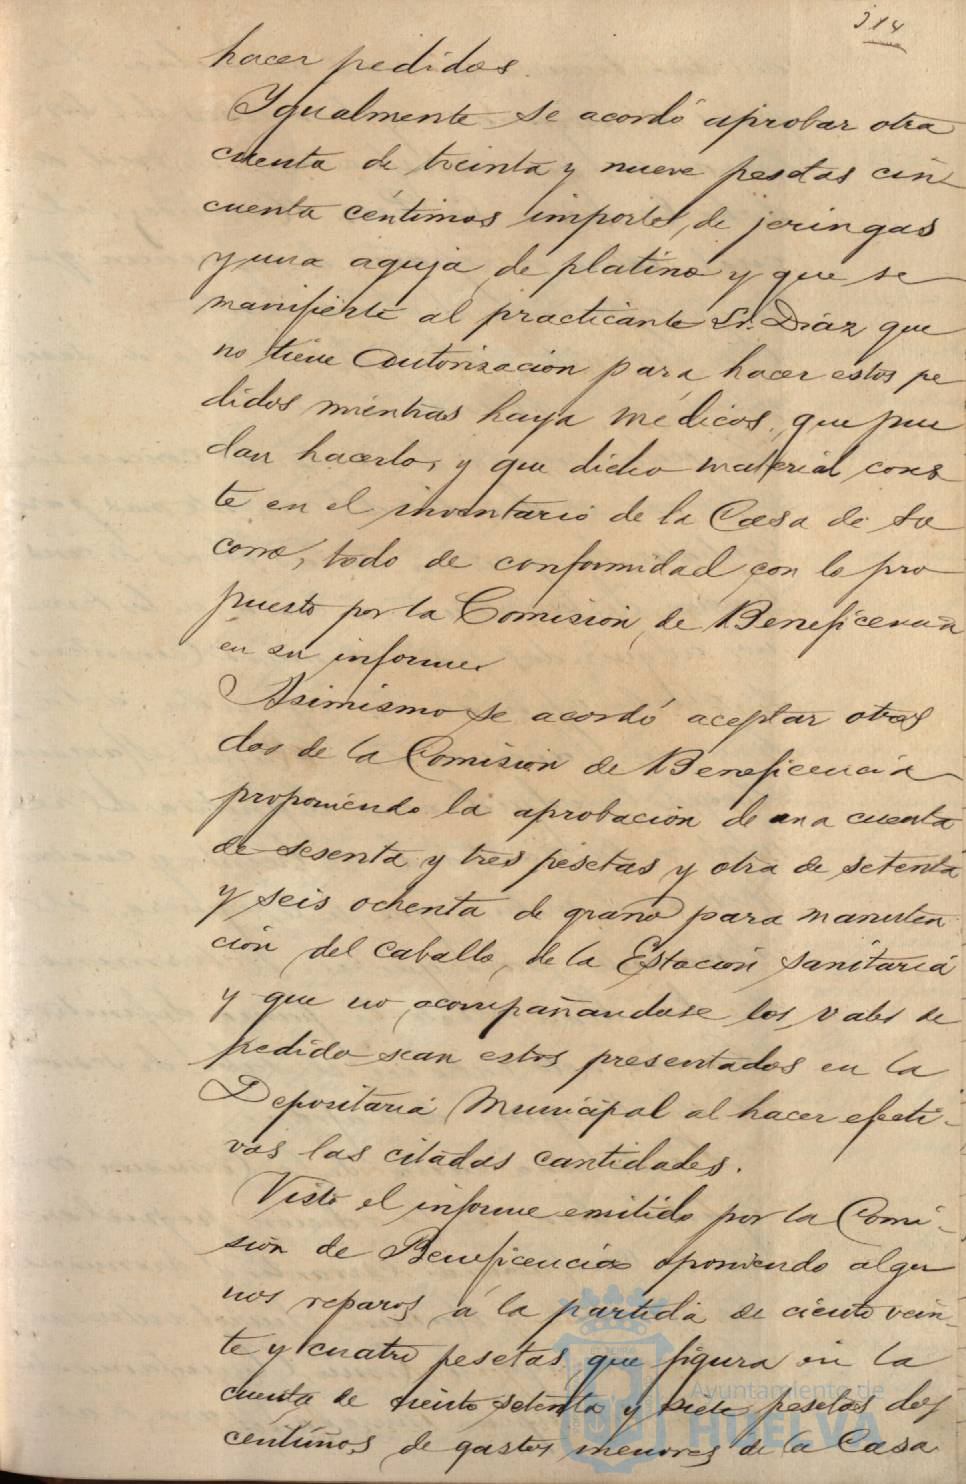 314
hacer pedidos.
Ygualmente se acordó aprobar otra
cuenta de treinta y nueve pesetas cin
cuenta céntimos importe, de jeringas
y una aguja de platino y que se
manifieste al practicante Sr. Diaz que
no tiene autorizacion para hacer estos pe
didos mientras haya médicos, que pue
dan hacerlo, y que dicho material cons
te en el inventario de la Casa de So
corro, todo de conformidad con lo pro
puesto por la Comision de Beneficencia
en su informe.
Asimismo se acordó aceptar otros
dos de la Comisión de Beneficencia
proponiendo la aprobación de una cuenta
de sesenta y tres pesetas y otra de setenta
y seis ochenta de grano para manuten
ción del caballo de la Estación sanitaria
y que no acompañandose los vales de
pedido sean estos presentados en la
Depositaria Municipal al hacer efecti-
vas las citadas cantidades.
Visto el informe emitido por la Comi-
sión de Beneficencia oponiendo algu
nos reparos á la partida de ciento vein-
te y cuatro pesetas que figura en la
cuenta de ciento setenta y siete pesetas dos
centimos de gastos menores de la Casa
Ayuntamiento de
HUELVA